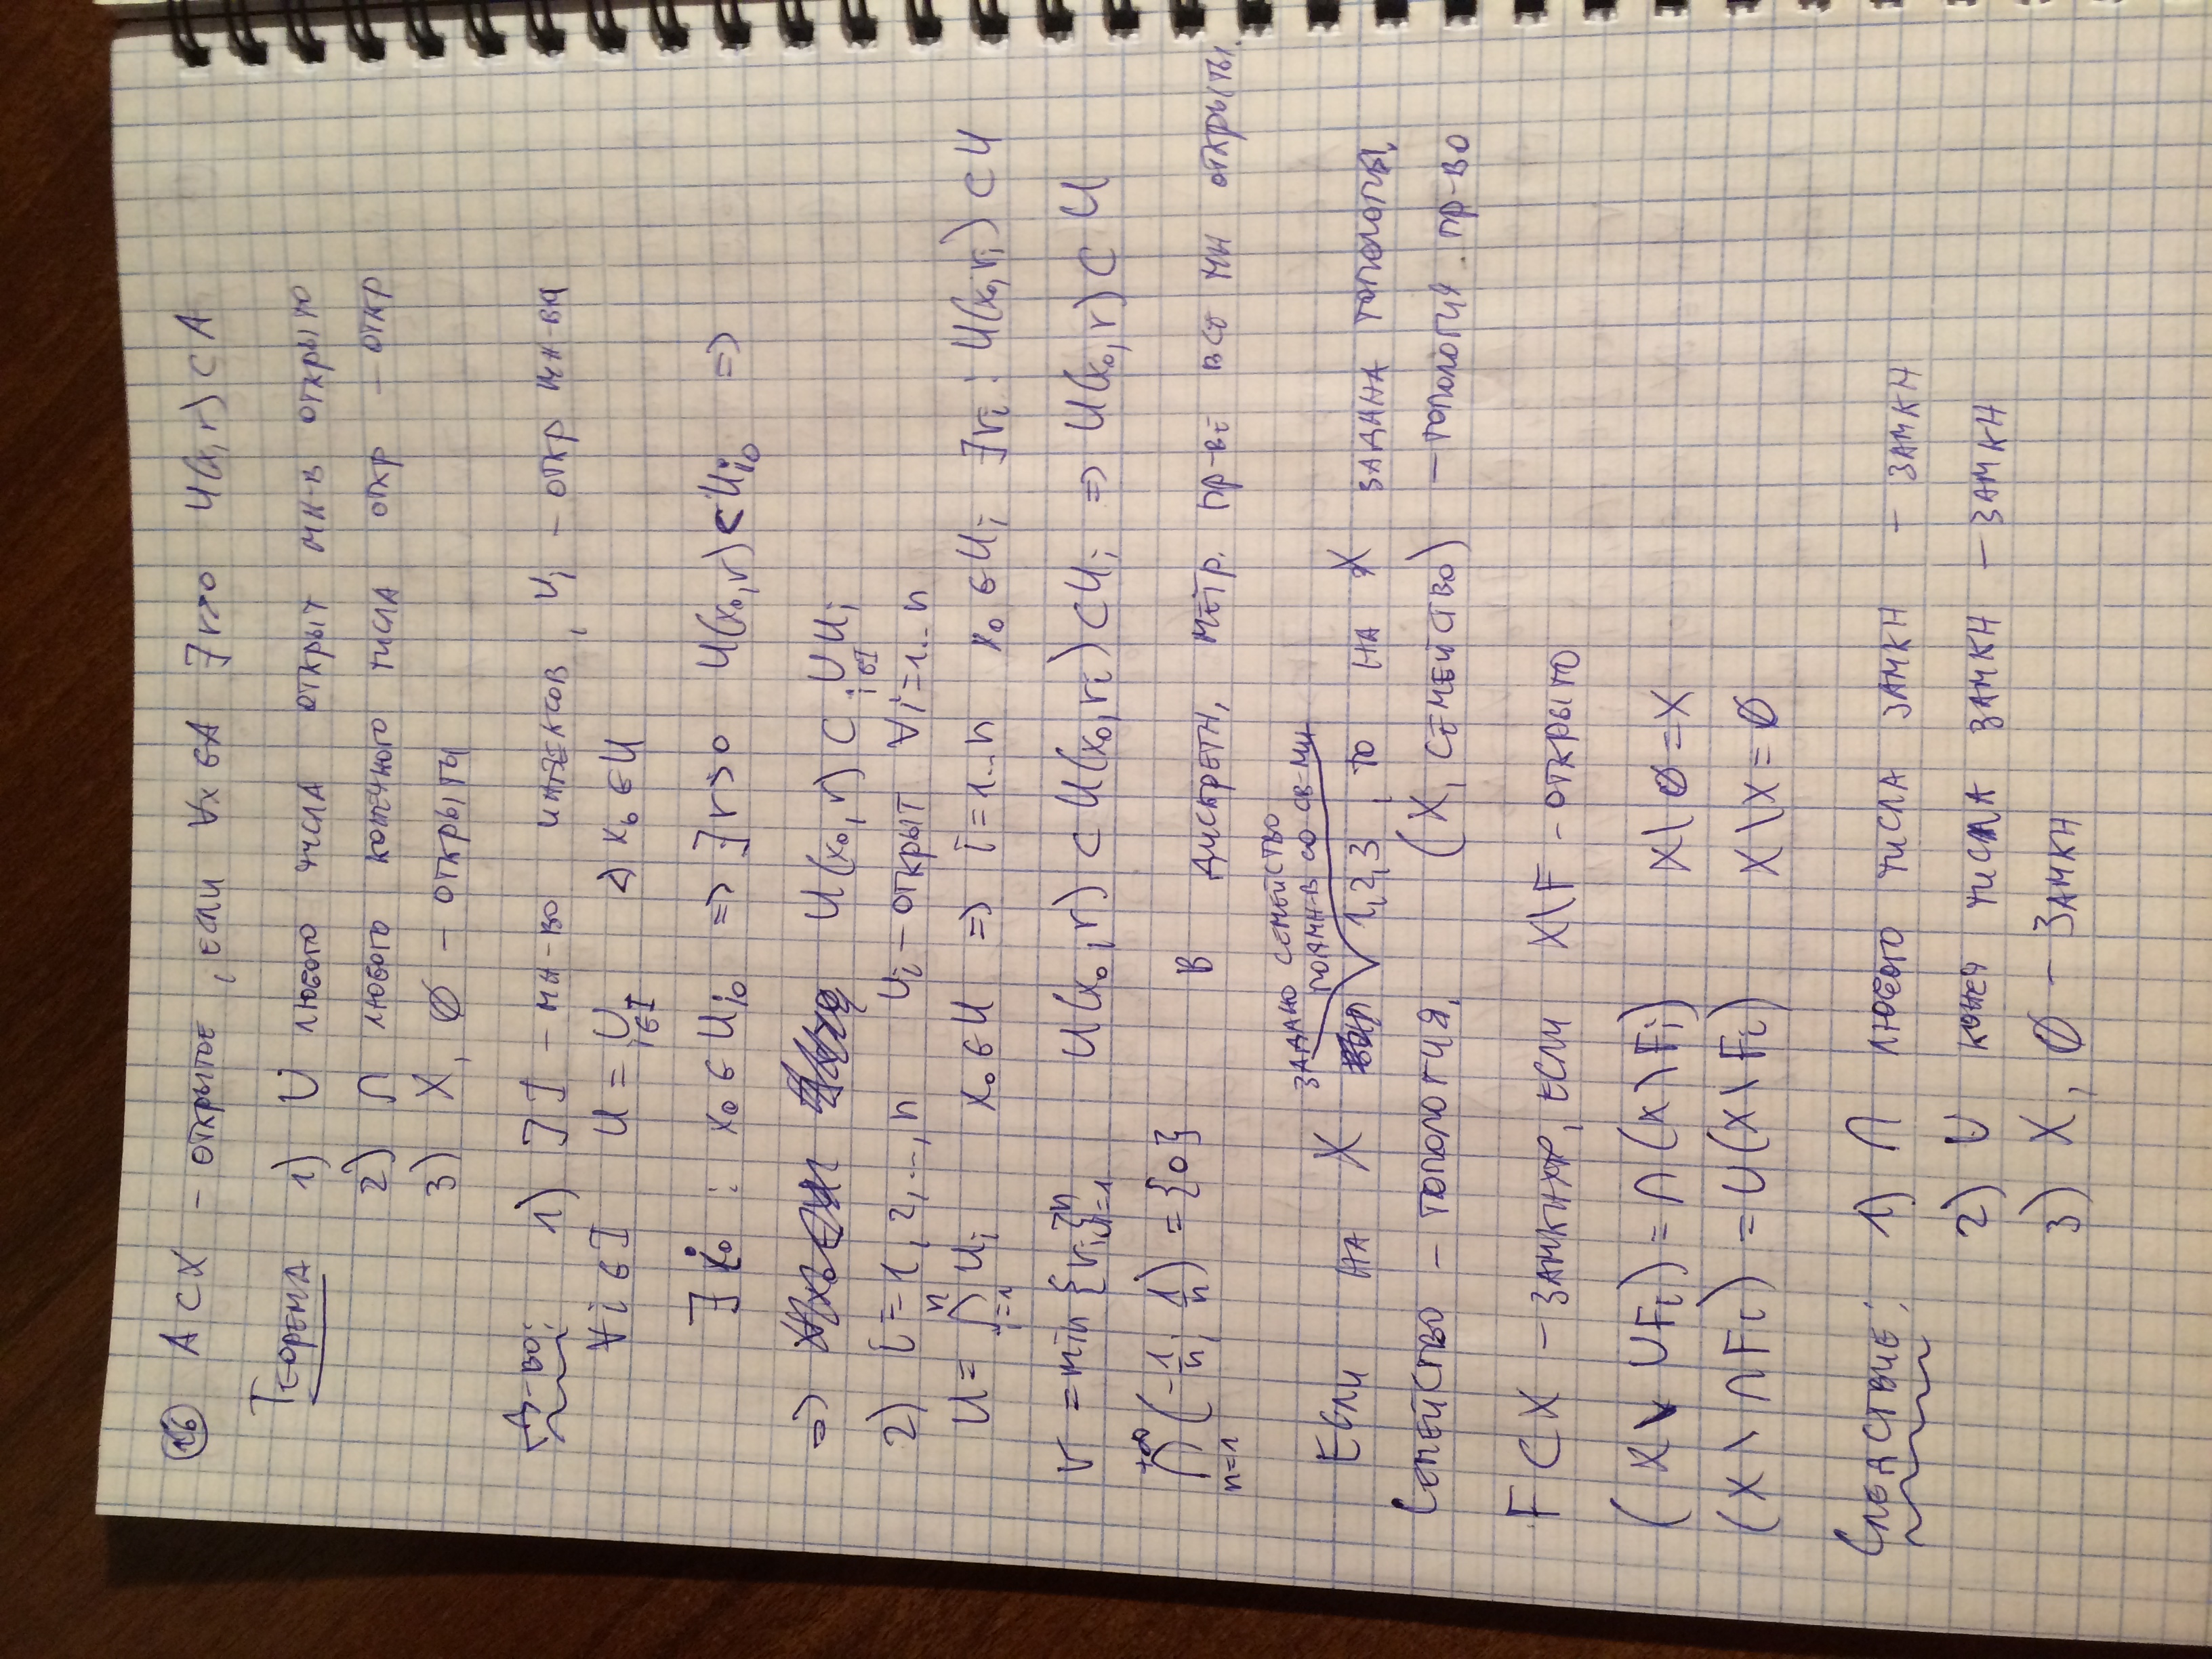 16 A ⊂ X – ОТКРЫТОЕ, ЕСЛИ ∀x ∈ A ∃r>0 U(x,r) ⊂ A
ТЕОРЕМА 1) ∪ ЛЮБОГО ЧИСЛА ОТКРЫТ МН-В ОТКРЫТО
2) ∩ ЛЮБОГО КОНЕЧНОГО ЧИСЛА ОТКР – ОТКР
3) X, ∅ – ОТКРЫТЫ
Д-ВО: 1) ∃ I – МН-ВО ИНДЕКСОВ, U_i – ОТКР МН-ВА
∀i ∈ I U = ∪_{i∈I} ∢ x₀ ∈ U
∃ i₀ : x₀ ∈ U_{i₀} => ∃r>0 U(x₀,r) ⊂ U_{i₀} =>
=> U(x₀,r) ⊂ ∪_{i∈I} U_i
2) i=1,2,...,n U_i – ОТКРЫТ ∀i=1...n
U = ∩_{i=1}^{n} U_i x₀ ∈ U => i=1...n x₀ ∈ U_i ∃r_i : U(x₀,r_i) ⊂ U
r = min {r_i}_{i=1}^{n} U(x₀,r) ⊂ U(x₀,r_i) ⊂ U_i => U(x₀,r) ⊂ U
∩_{n=1}^{+∞} (-1/n; 1/n) = {0} В ДИСКРЕТН. МЕТР. ПР-ВЕ ВСЕ МН ОТКРЫТЫ.
ЗАДАНО СЕМЕЙСТВО
ПОДМН-В СО СВ-МИ
ЕСЛИ НА X 1,2,3, ТО НА X ЗАДАНА ТОПОЛОГИЯ.
СЕМЕЙСТВО – ТОПОЛОГИЯ. (X, СЕМЕЙСТВО) – ТОПОЛОГИЯ. ПР-ВО
F ⊂ X – ЗАМКНУТ, ЕСЛИ X\F – ОТКРЫТО
(X \ ∪F_i) = ∩(X\F_i) X\∅=X
(X \ ∩F_i) = ∪(X\F_i) X\X=∅
СЛЕДСТВИЕ: 1) ∩ ЛЮБОГО ЧИСЛА ЗАМКН – ЗАМКН
2) ∪ КОНЕЧ ЧИСЛА ЗАМКН – ЗАМКН
3) X, ∅ – ЗАМКН